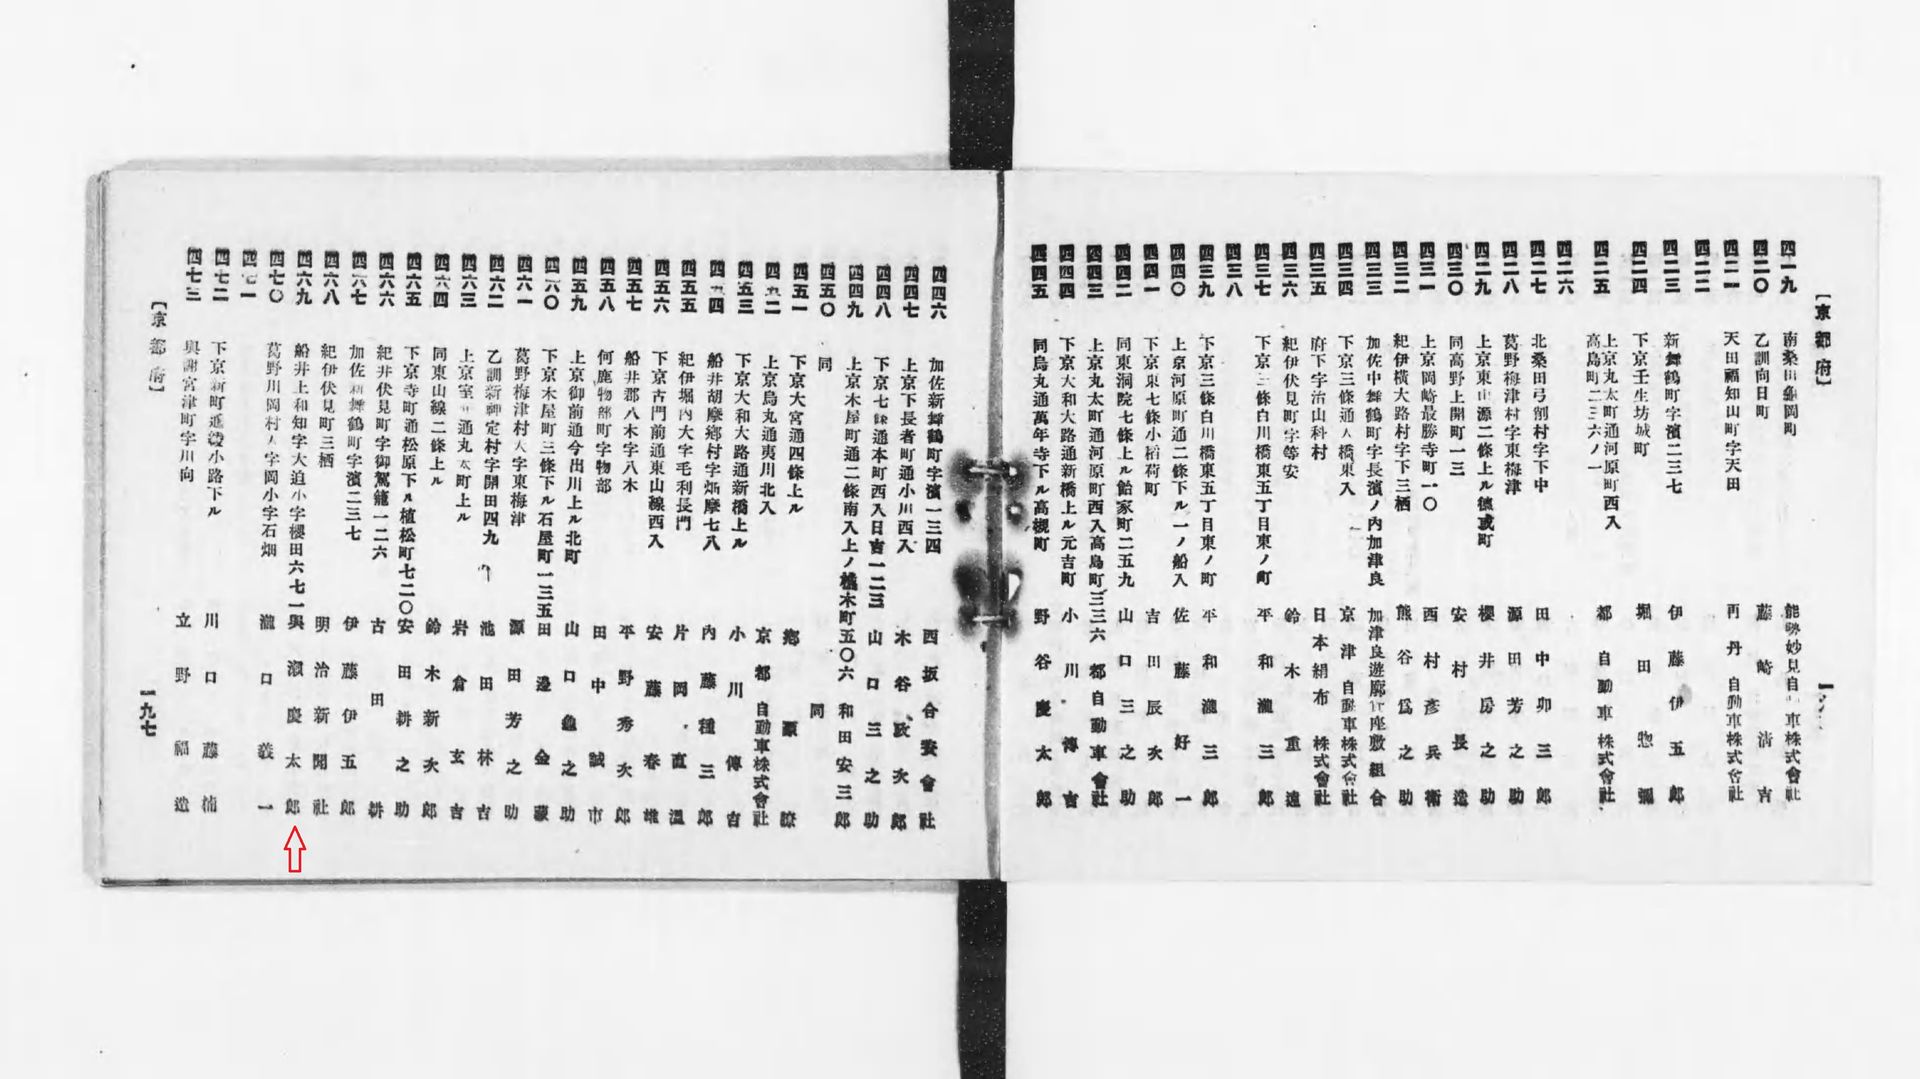 〔京都府〕
四一九 南桑田龜岡町 能勢妙見自動車株式會社
四二〇 乙訓向日町 藤崎淸吉
四二一 天田福知山町字天田 再丹自動車株式會社
四二二
四二三 新舞鶴町字濱二三七 伊藤伊五郎
四二四 下京壬生坊城町 堀田惣彌
四二五 上京丸太町通河原町西入高島町二三六ノ一 都自動車株式會社
四二六
四二七 北桑田弓削村字下中 田中卯三郎
四二八 葛野梅津村字東梅津 源田芳之助
四二九 上京東山源二條上ル德成町 櫻井房之助
四三〇 同高野上開町一三 安村長造
四三一 上京岡崎最勝寺町一〇 西村彥兵衞
四三二 紀伊橫大路村字下三栖 熊谷爲之助
四三三 加佐中舞鶴町字長濱ノ內加津良 加津良遊廓貸座敷組合
四三四 下京三條通大橋東入 京津自動車株式會社
四三五 府下字治山科村 日本絹布株式會社
四三六 紀伊伏見町字等安 鈴木重遠
四三七 下京三條白川橋東五丁目東ノ町 平和瀧三郎
四三八
四三九 下京三條白川橋東五丁目東ノ町 平和瀧三郎
四四〇 上京河原町通二條下ル一ノ船入 佐藤好一
四四一 下京東七條小稻荷町 吉川辰次郎
四四二 同東洞院七條上ル飴家町二五九 山口三之助
四四三 上京丸太町通河原町西入高島町三三六 都自動車會社
四四四 下京大和大路通新橋上ル元吉町 小川傳吉
四四五 同烏丸通萬年寺下ル高槻町 野谷慶太郎
四四六 加佐新舞鶴町字濱一三四 西坂合資會社
四四七 上京下長者町通小川西入 木谷政次郎
四四八 下京七條通本町西入日吉一二三 山口三之助
四四九 上京木屋町通二條南入上ノ樵木町五〇六 和田安三郎
四五〇 同 同
四五一 下京大宮通四條上ル 鄕原諒
四五二 上京烏丸通夷川北入 京都自動車株式會社
四五三 下京大和大路通新橋上ル 小川傳吉
四五四 船井胡摩鄕村字畑摩七八 內藤種三郎
四五五 紀伊堀內大字毛利長門 片岡直溫
四五六 下京古門前通東山線西入 安藤春雄
四五七 船井郡八木字八木 平野秀次郎
四五八 何鹿物部町字物部 田中誠市
四五九 上京御前通今出川上ル北町 山口龜之助
四六〇 下京木屋町三條下ル石屋町一三五 田邊金藏
四六一 葛野梅津村大字東梅津 源田芳之助
四六二 乙訓新神足村字開田四九 池田林吉
四六三 上京室町通丸太町上ル 岩倉玄吉
四六四 同東山線二條上ル 鈴木新次郎
四六五 下京寺町通松原下ル植松町七二〇 安田耕之助
四六六 紀井伏見町字御駕籠一二六 古田耕
四六七 加佐新舞鶴町字濱二三七 伊藤伊五郎
四六八 紀伊伏見町三栖 明治新聞社
四六九 船井上和知字大迫小字櫻田六七一 與瀨慶太郎
四七〇 葛野川岡村大字岡小字石畑 瀧口義一
四七一
四七二 下京新町通綾小路下ル 川口藤楠
四七三 與謝宮津町字川向 立野福造
〔京都府〕
一九七